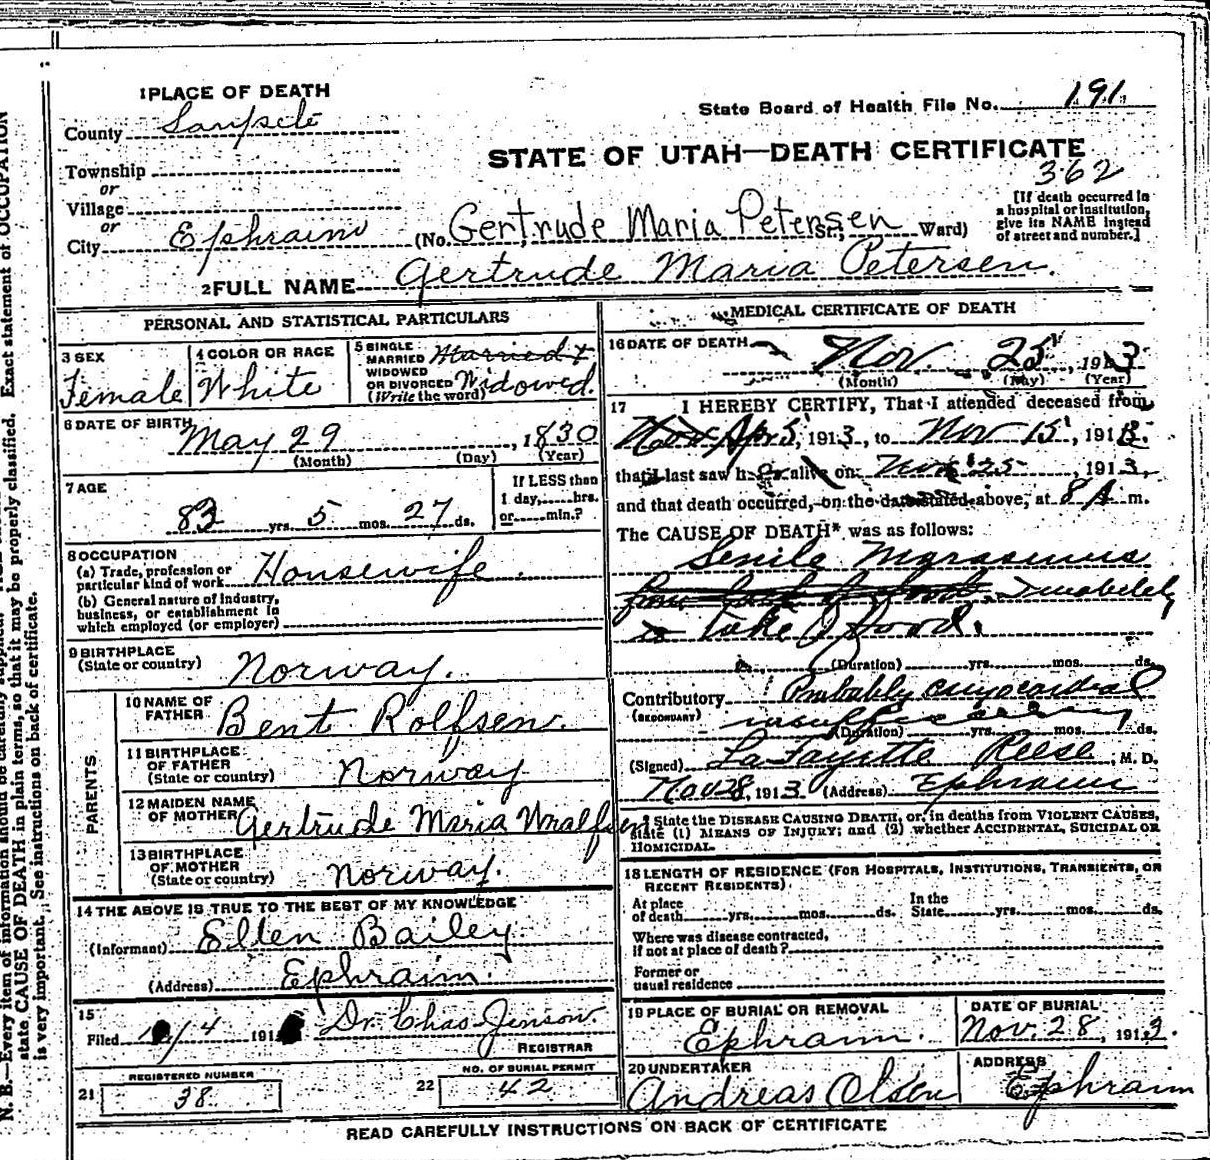 1 PLACE OF DEATH
County Sanpete
Township
or
Village
or
City Ephraim
State Board of Health File No. 191
STATE OF UTAH—DEATH CERTIFICATE
362
(No. Gertrude Maria Petersen St.; Ward)
[If death occurred in a hospital or institution, give its NAME instead of street and number.]
2 FULL NAME Gertrude Maria Petersen.
PERSONAL AND STATISTICAL PARTICULARS
3 SEX
Female
4 COLOR OR RACE
White
5 SINGLE
MARRIED Married
WIDOWED
OR DIVORCED Widowed.
(Write the word)
6 DATE OF BIRTH
May 29, 1830
(Month) (Day) (Year)
7 AGE
83 yrs. 5 mos. 27 ds.
If LESS than
1 day, hrs.
or min.?
8 OCCUPATION
(a) Trade, profession or
particular kind of work Housewife.
(b) General nature of industry,
business, or establishment in
which employed (or employer)
9 BIRTHPLACE
(State or country) Norway.
PARENTS
10 NAME OF
FATHER Bent Rolfsen.
11 BIRTHPLACE
OF FATHER
(State or country) Norway
12 MAIDEN NAME
OF MOTHER Gertrude Maria
13 BIRTHPLACE
OF MOTHER
(State or country) Norway.
14 THE ABOVE IS TRUE TO THE BEST OF MY KNOWLEDGE
(Informant) Ellen Bailey
(Address) Ephraim.
15
Filed /4 191 Dr Chas Jenson
REGISTRAR
21 REGISTERED NUMBER
38
22 NO. OF BURIAL PERMIT
42
MEDICAL CERTIFICATE OF DEATH
16 DATE OF DEATH
Nov. 25, 1913
(Month) (Day) (Year)
17 I HEREBY CERTIFY, That I attended deceased from
Apr 5, 1913, to Nov 15, 1913.
that I last saw her alive on Nov 25, 1913,
and that death occurred, on the date stated above, at 8 A m.
The CAUSE OF DEATH* was as follows:
Senile Marasmus
from lack of food. Inability
to take food.
(Duration) yrs. mos. ds.
Contributory Probably myocardial
(SECONDARY) insufficiency
(Duration) yrs. mos. ds.
(Signed) LaFayette Reese, M. D.
Nov 28, 1913 (Address) Ephraim
* State the DISEASE CAUSING DEATH, or, in deaths from VIOLENT CAUSES,
state (1) MEANS OF INJURY; and (2) whether ACCIDENTAL, SUICIDAL OR
HOMICIDAL.
18 LENGTH OF RESIDENCE (FOR HOSPITALS, INSTITUTIONS, TRANSIENTS, OR
RECENT RESIDENTS)
At place
of death yrs. mos. ds.
In the
State yrs. mos. ds.
Where was disease contracted,
if not at place of death?
Former or
usual residence
19 PLACE OF BURIAL OR REMOVAL
Ephraim.
DATE OF BURIAL
Nov. 28, 1913.
20 UNDERTAKER
Andreas Olsen
ADDRESS
Ephraim
READ CAREFULLY INSTRUCTIONS ON BACK OF CERTIFICATE
state CAUSE OF DEATH in plain terms, so that it may be properly classified. Exact statement of OCCUPATION
is very important. See instructions on back of certificate.